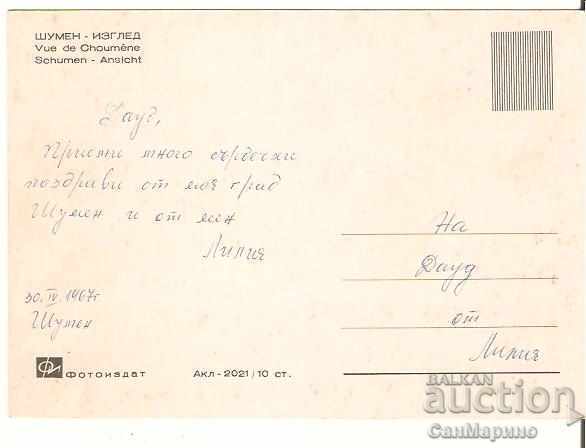 ШУМЕН - ИЗГЛЕД
Vue de Choumène
Schumen - Ansicht
Дауд,
Приеми много сърдечни
поздрави от моя град
Шумен и от мен
Лилия
30. IV. 1967г
Шумен
На
Дауд
от
Лилия
Фотоиздат
Акл-2021/10 ст.
BALKAN
auction
СанМарино